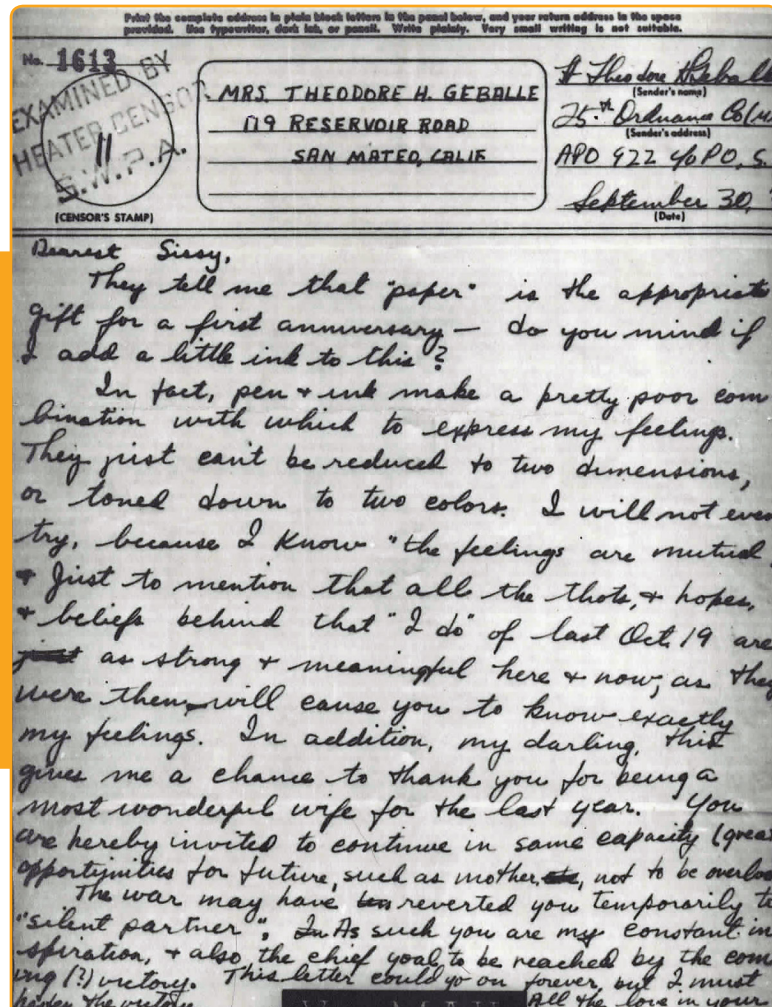 Print the complete address in plain block letters in the panel below, and your return address in the space
provided. Use typewriter, dark ink, or pencil. Write plainly. Very small writing is not suitable.
No. 1613
EXAMINED BY
THEATER CENSOR
11
S.W.P.A.
(CENSOR'S STAMP)
MRS. THEODORE H. GEBALLE
119 RESERVOIR ROAD
SAN MATEO, CALIF
Lt Theodore H Geball
(Sender's name)
25th Ordnance Co (M
(Sender's address)
APO 922 c/o PO, S.
September 30,
(Date)
Dearest Sissy,
They tell me that "paper" is the appropriate
gift for a first anniversary — do you mind if
I add a little ink to this?
In fact, pen + ink make a pretty poor com
bination with which to express my feelings.
They just can't be reduced to two dimensions,
or toned down to two colors. I will not even
try, because I know "the feelings are mutual
+ Just to mention that all the thots, + hopes,
+ beliefs behind that "I do" of last Oct. 19 are
just as strong + meaningful here + now, as they
were then, will cause you to know exactly
my feelings. In addition, my darling, this
gives me a chance to thank you for being a
most wonderful wife for the last year. You
are hereby invited to continue in same capacity (great
opportunities for future, such as mother, not to be overloo
The war may have reverted you temporarily to
"silent partner". In As such you are my constant in
spiration, + also, the chief goal to be reached by the com
ing (?) victory. This letter could go on forever, but I must
the victory All the love in your